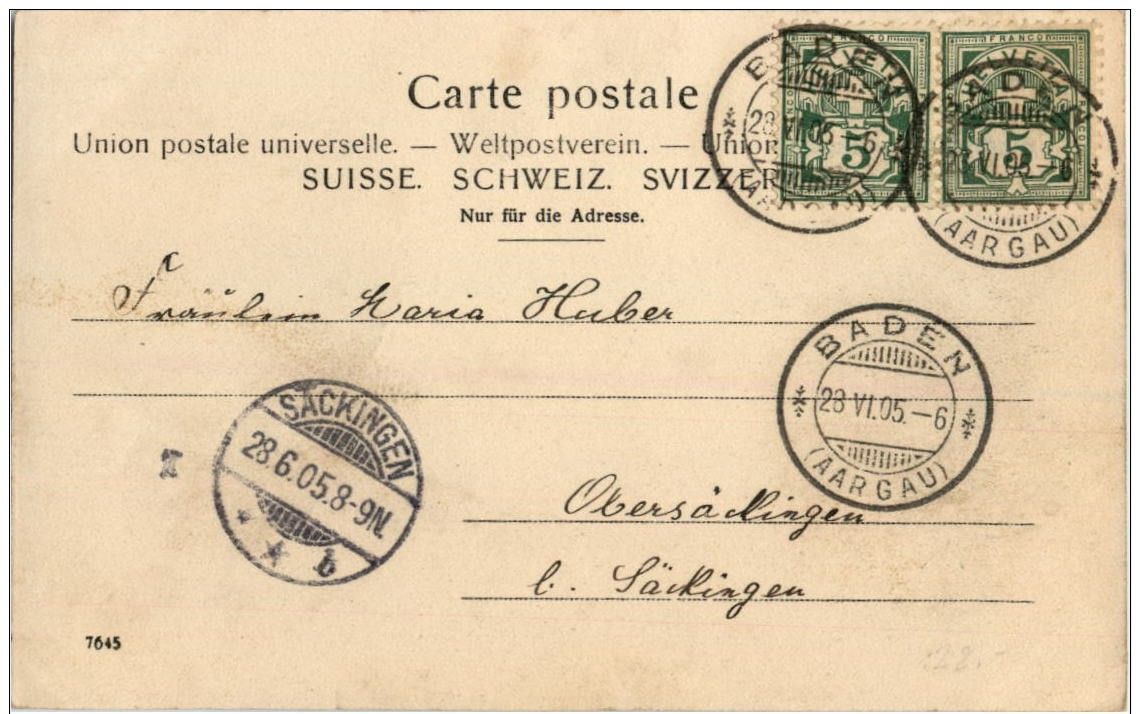 Carte postale
Union postale universelle. — Weltpostverein. — Union
SUISSE. SCHWEIZ. SVIZZER
Nur für die Adresse.
FRANCO
HELVETIA
5
FRANCO
HELVETIA
5
BADEN
28.VI.05.–6
(AARGAU)
BADEN
28.VI.05.–6
(AARGAU)
Fräulein Maria Huber
BADEN
28.VI.05.–6
(AARGAU)
SÄCKINGEN
28.6.05.8-9N.
b
I
Obersäckingen
b. Säckingen
7645